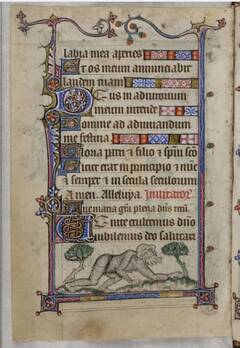 labia mea aperies
Et os meum annunciabit
laudem tuam
Deus in adiutorium
meum intende
Domine ad adiuvandum
me festina
Gloria patri & filio & spũi sco
Sicut erat in principio & nũc
& semper & in secula seculorum
Amen. Alleluya. Invitatoz.
Aue maria gr̃a plena dñs tecũ.
Venite exultemus dño
iubilemus deo salutari